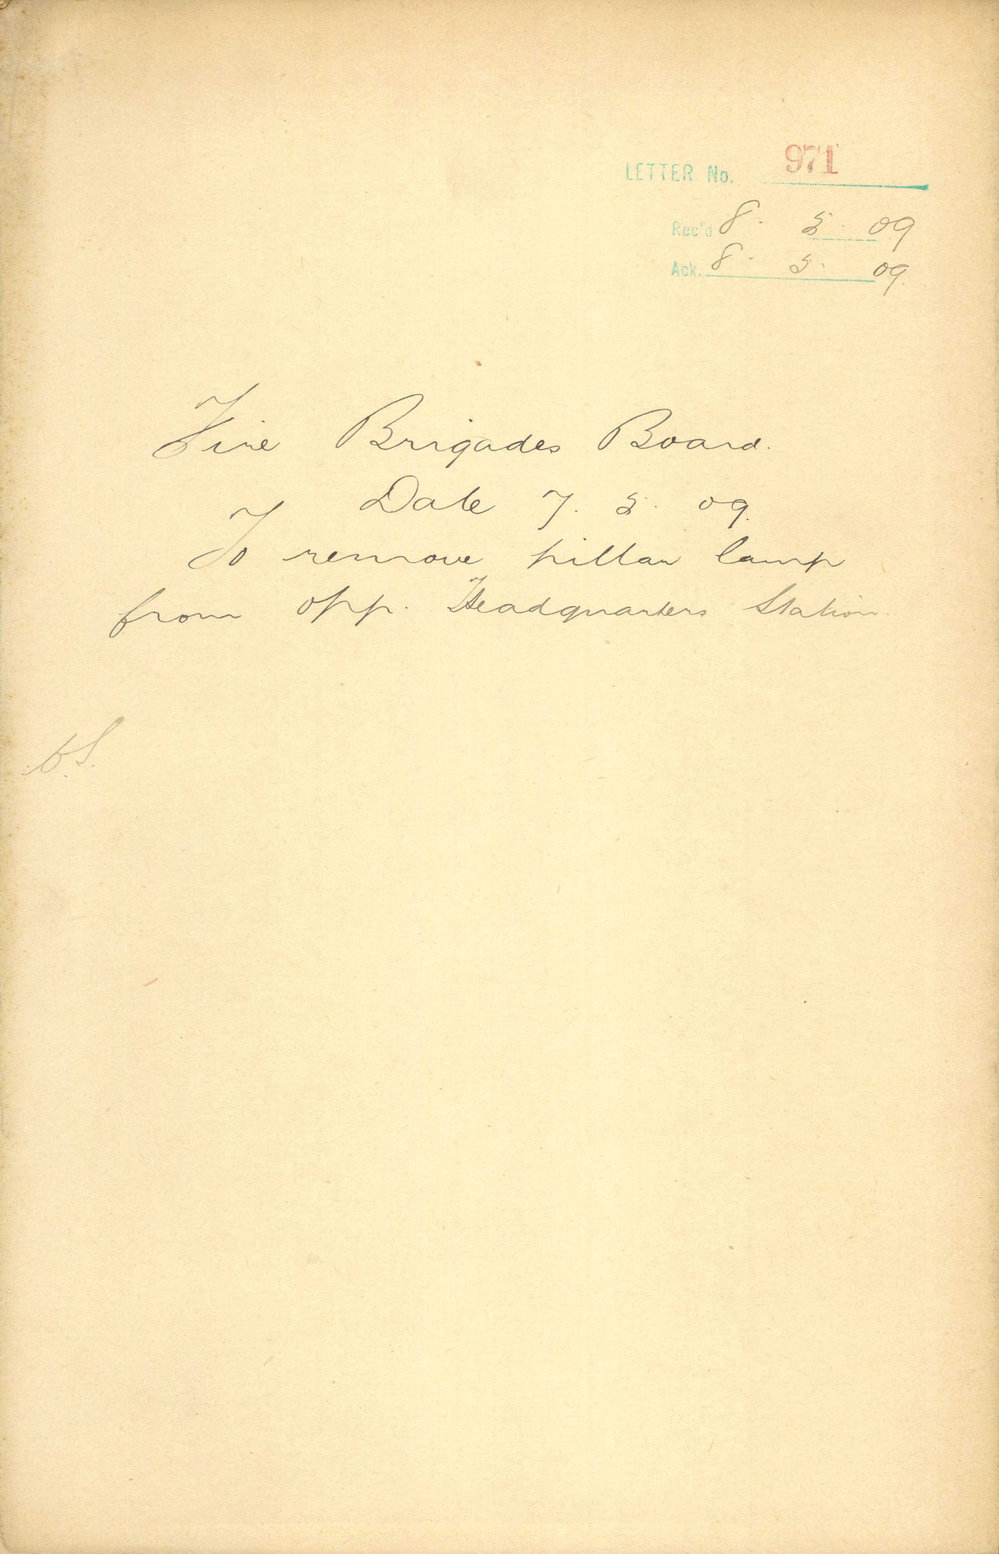 LETTER No. 971
Rec'd 8. 5. 09
Ack. 8. 5. 09.
Fire Brigades Board.
Date 7. 5. 09.
To remove pillar lamp
from opp. Headquarters Station.